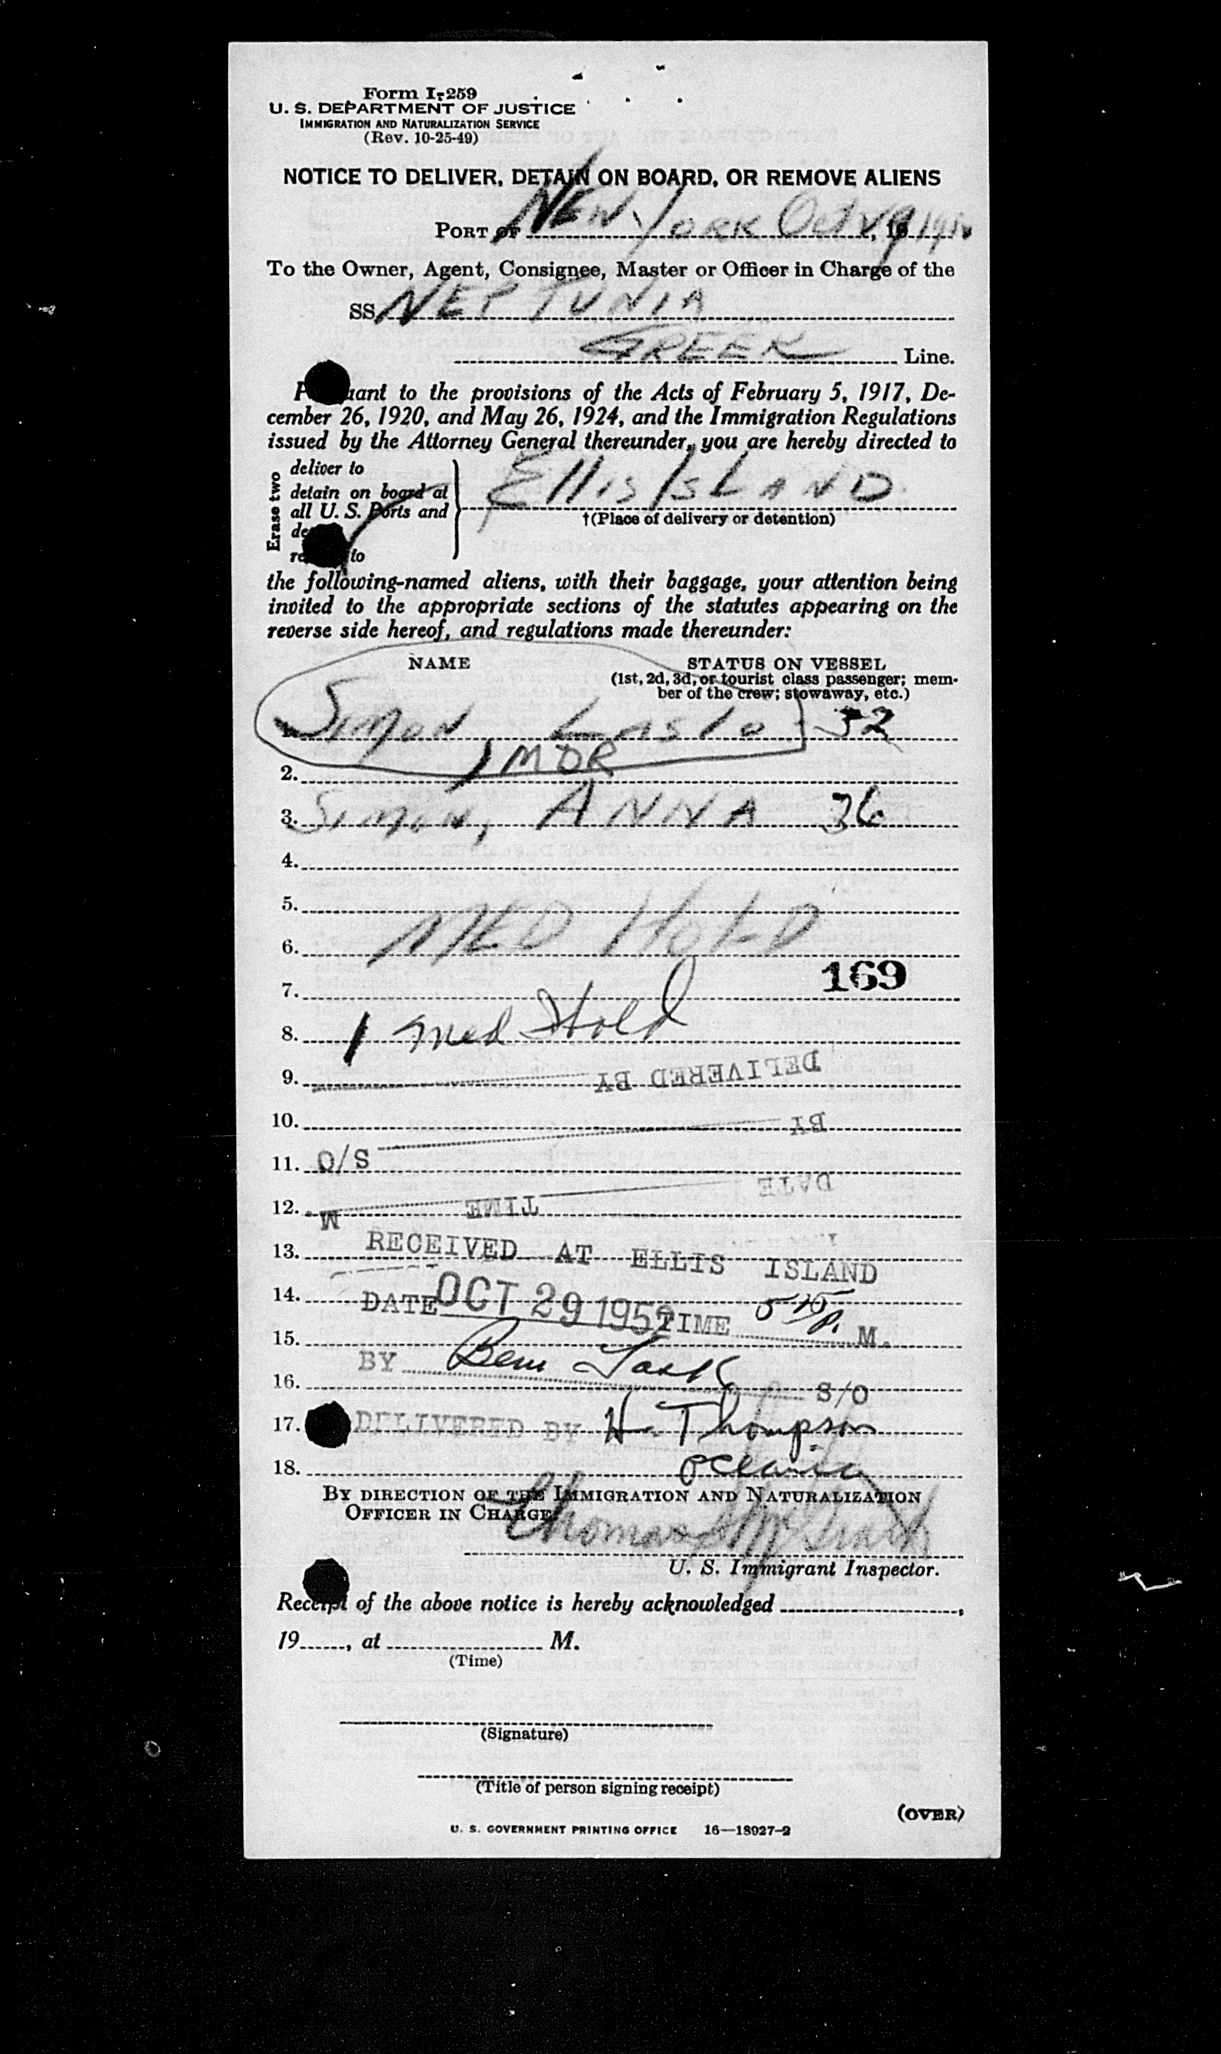 Form I-259
U. S. DEPARTMENT OF JUSTICE
IMMIGRATION AND NATURALIZATION SERVICE
(Rev. 10-25-49)
NOTICE TO DELIVER, DETAIN ON BOARD, OR REMOVE ALIENS
PORT OF NEW YORK Oct 29, 19
To the Owner, Agent, Consignee, Master or Officer in Charge of the
SS NEPTUNIA
GREEK Line.
Pursuant to the provisions of the Acts of February 5, 1917, De-
cember 26, 1920, and May 26, 1924, and the Immigration Regulations
issued by the Attorney General thereunder, you are hereby directed to
Erase two
deliver to
detain on board at
all U. S. Ports and
to
EllIS ISLAND
†(Place of delivery or detention)
the following-named aliens, with their baggage, your attention being
invited to the appropriate sections of the statutes appearing on the
reverse side hereof, and regulations made thereunder:
NAME STATUS ON VESSEL
(1st, 2d, 3d, or tourist class passenger; mem-
ber of the crew; stowaway, etc.)
1. SIMON, LASlO 32
2. IMOR
3. SIMON, ANNA 36
4.
5.
6. MED HOLD
169
7.
8. 1 Med Hold
9. DELIVERED BY
10. BY
11. O/S
12. DATE TIME M.
13. RECEIVED AT ELLIS ISLAND
14. DATE OCT 29 1952 TIME 5 15 P. M.
15.
BY Ben
16. S/O
17. DELIVERED BY H. Thompson
18. Oceanic
BY DIRECTION OF THE IMMIGRATION AND NATURALIZATION
OFFICER IN CHARGE:
Thomas
U. S. Immigrant Inspector.
Receipt of the above notice is hereby acknowledged ,
19 , at M.
(Time)
(Signature)
(Title of person signing receipt)
(OVER)
U. S. GOVERNMENT PRINTING OFFICE 16—18927-2